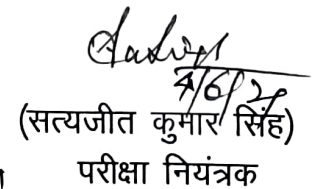 4/6/
(सत्यजीत कुमार सिंह)
परीक्षा नियंत्रक